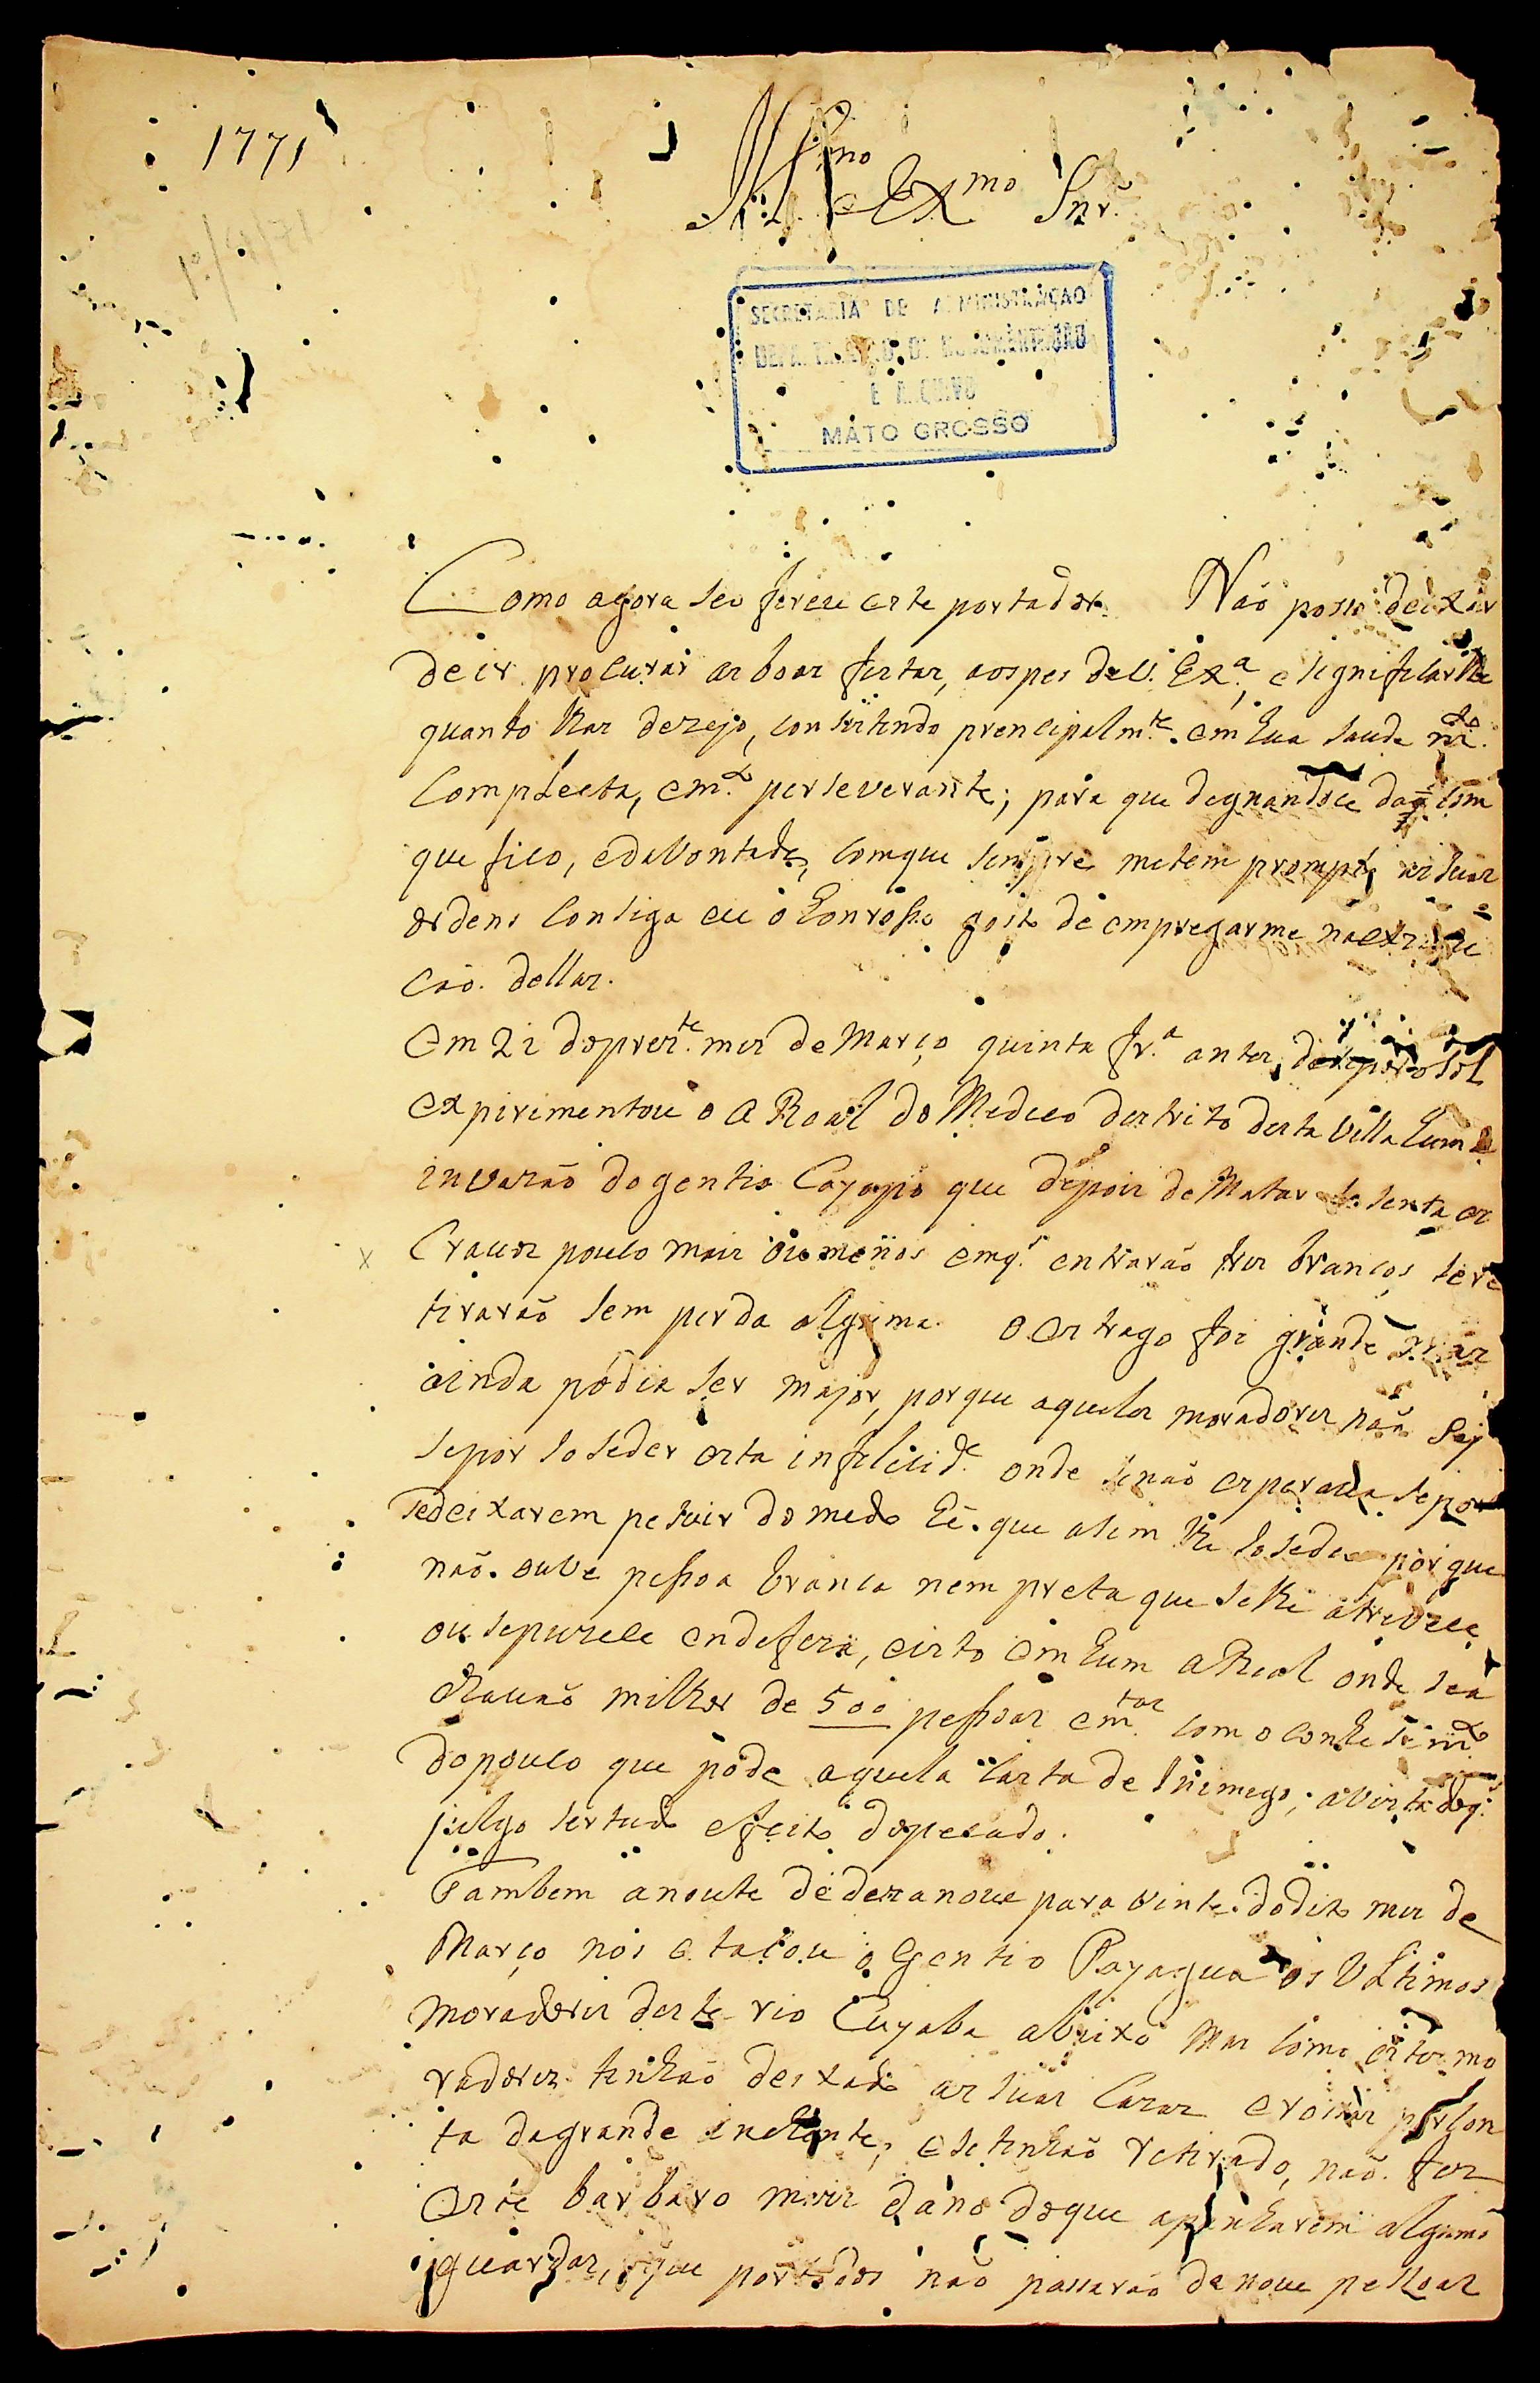 1771
Ill.mo e Ex.mo Snr.
SECRETARIA DE ADMINISTRAÇÃO
DEPARTAMENTO DE DOCUMENTAÇÃO
E ARQUIVO
MATO GROSSO
Como agora seo ferece este portador Não posso deixar
de ir procurar as boas festas, aos pes de V. Ex.ª, e significarlhe
quanto lhas dezejo, consistindo prencipalm.te em hua saude m.to
Completa, e m.to perseverante; para que dignandoce da com
que fico, e da Vontade, com que sempre metem prompto as suas
ordens consiga eu o honrosso gosto de empregarme na
cão dellas.
Em 21 do prez.te mes de Março quinta fr.ª antes de o sol
expirimentou o AReal do Medico destrito desta Villa huma
invazão do gentio Cayapó que depois de Matar secenta es
Cravos pouco mais ou menos em q.' entrarão tres brancos sere
tirarão sem perda alguma. o estrago foi grande mas
ainda pódia ser major, porque aqueles moradores não
sepor soseder esta infelicid.e onde senão esperava sepor
sedeixarem pesuir do medo hé que asim lhe sosedeo porque
não ouve pessoa branca nem preta que selhe atrevece
ou sepuzece endefeza, cirto em hum aReal onde sea
chavão milhor de 500 pessoas e m.tas com o conhesim.to
do pouco que póde aquela casta de Inimigo; a vista doq.'
julgo ser tudo efeito do pecado.
Tambem a noute de dezanove para vinte do dito mes de
Março nos atacou o Gentio Payagua os Ultimos
moradores deste rio Cuyaba abaixo Mas como estes mo
radores tinhão deixado as suas Cazas e rossas por con
ta da grande enchente, e se tinhão retirado, não fez
este barbaro mais dano do que apanharem alguns
guardas, que por todos não passarão de nove pessoas